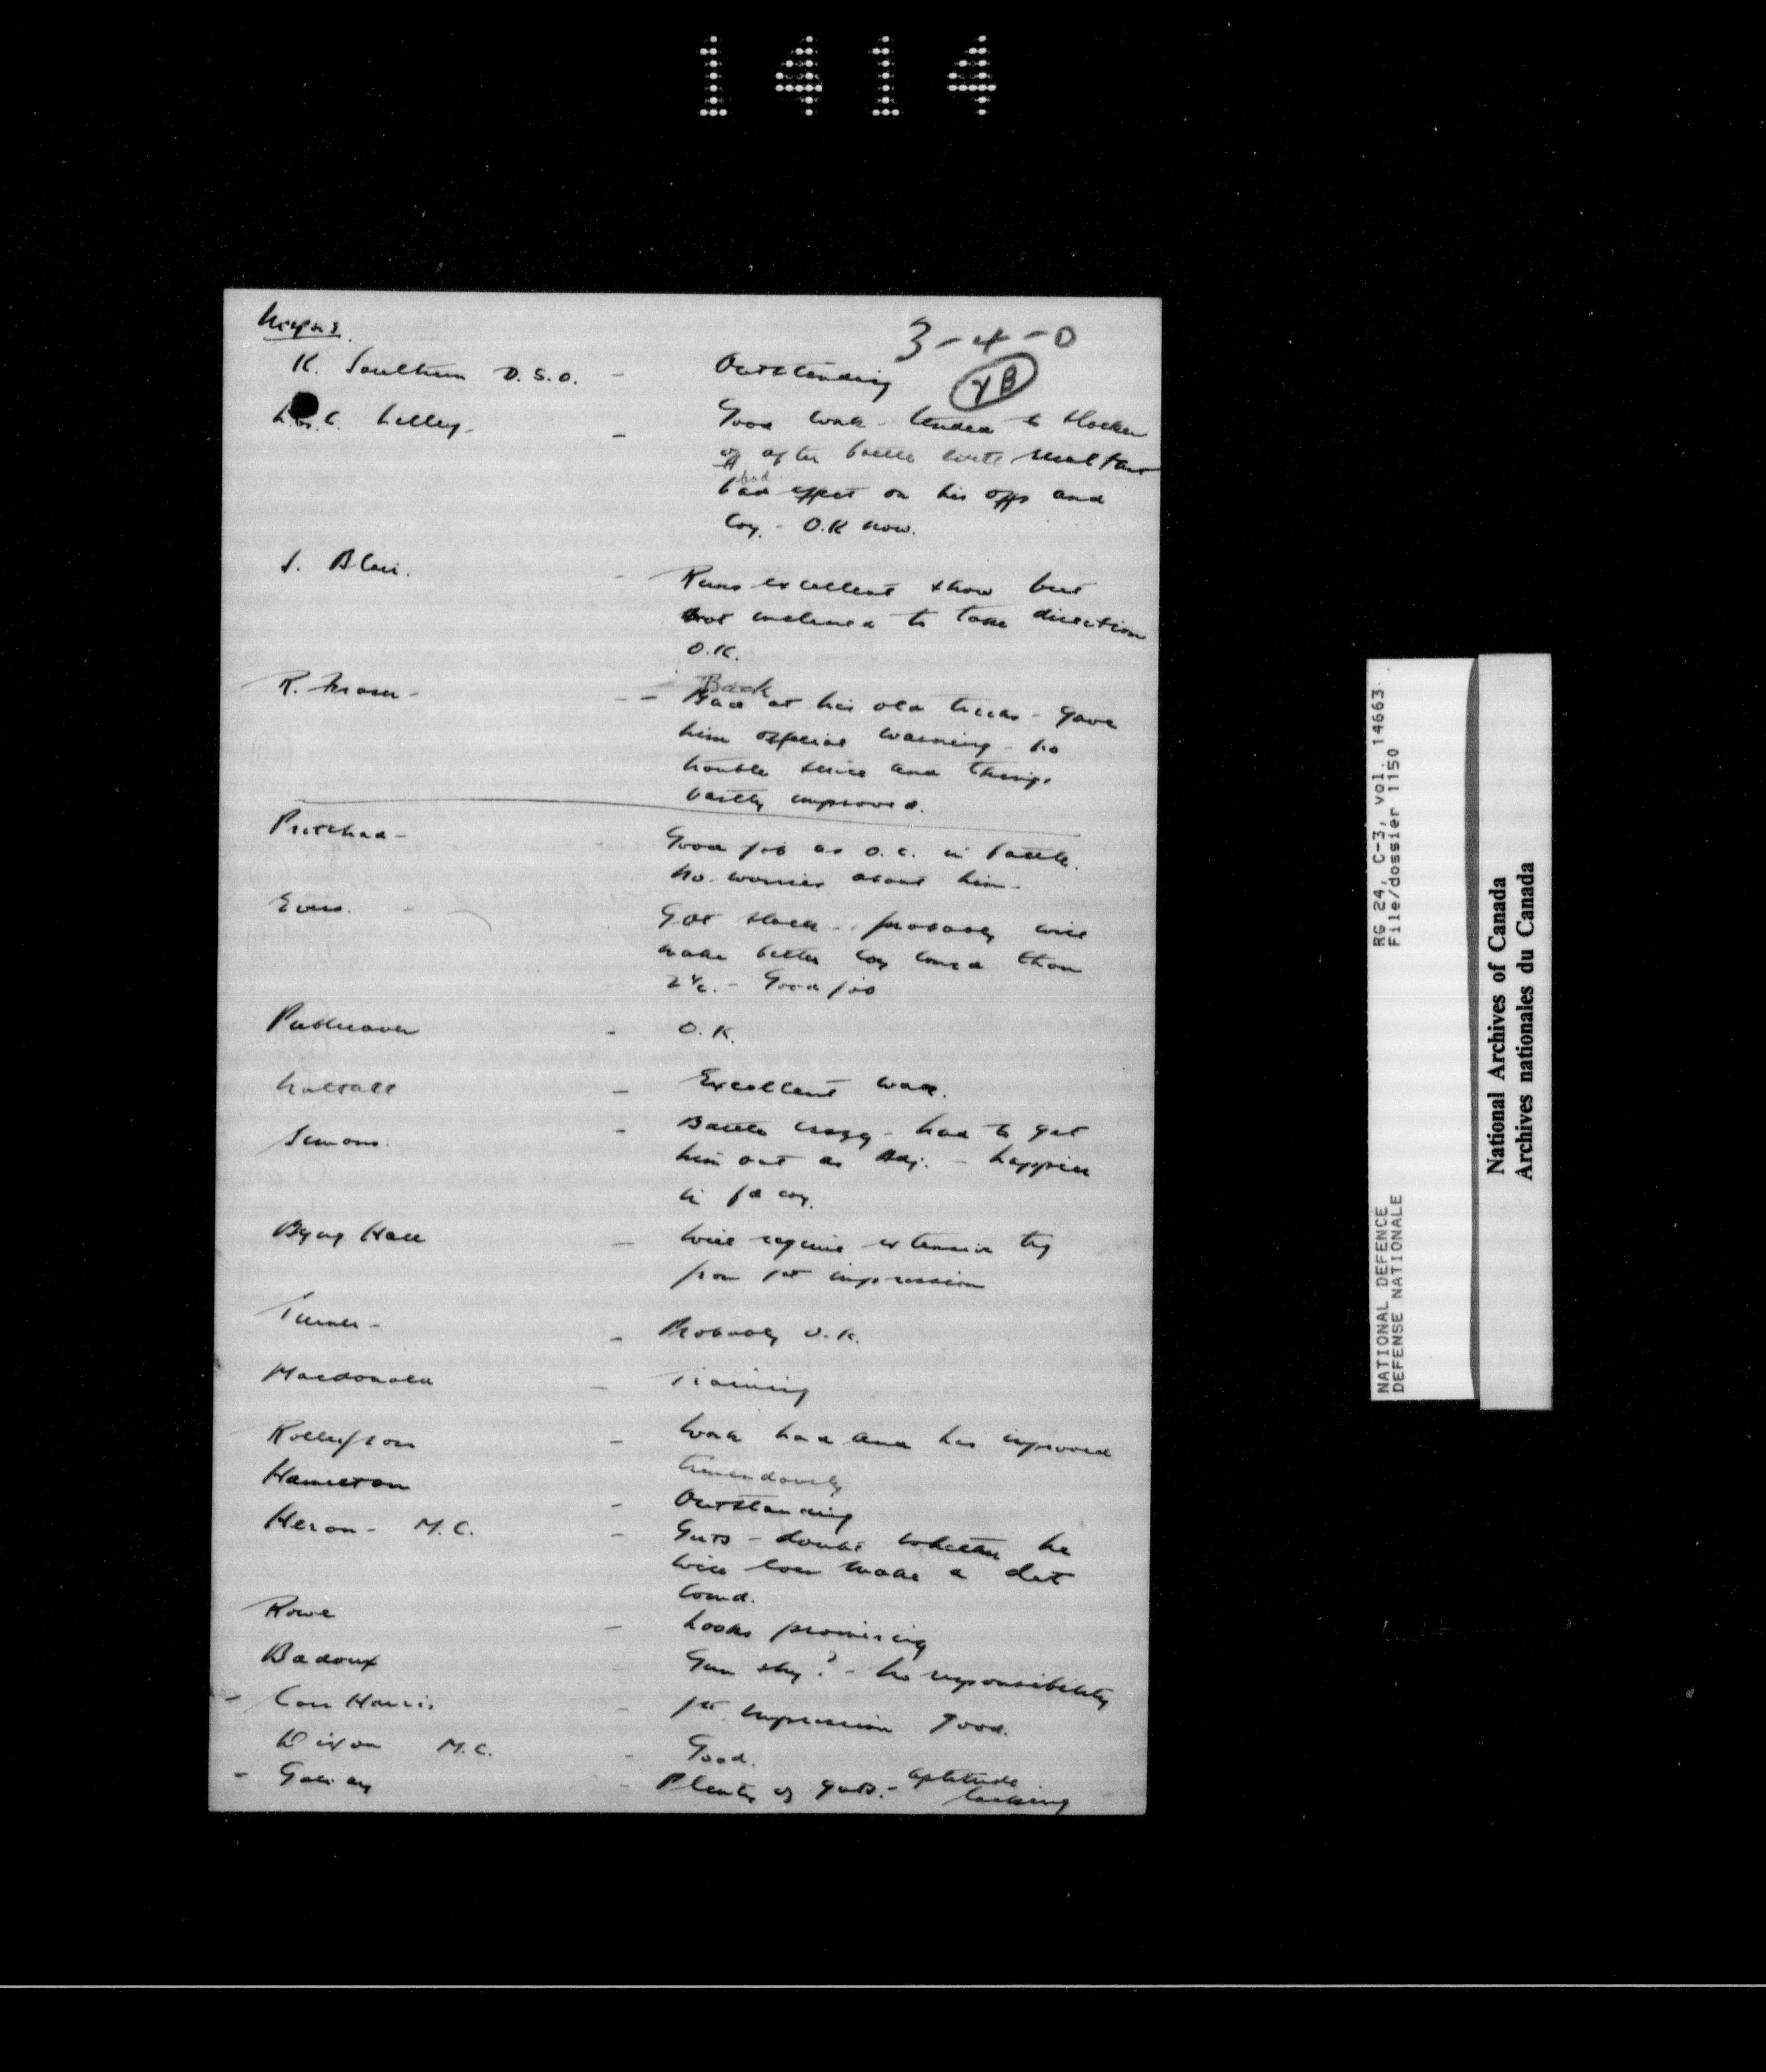 1414
Majors.
3-4-0
K. Southern D.S.O. - Outstanding
YB
L. C. Lilley - Good work - tended to slacken
off after battle with resultant
bad bad effect on his offrs and
Coy. - O.K now.
S. Blair. - Runs excellent show but
not inclined to take direction
O.K.
R. - - Back
Back at his old tricks - Gave
him official warning - No
trouble since and things
vastly improved.
Pritchard - Good job as O.C. in battle.
No worries about him -
Evans. - Got slack - probably will
make better coy comd than
2 i/c. - Good job
- O.K.
Halsall - Excellent work.
Simons. - Battle crazy - had to get
him out as Adj. - happier
in fd coy.
Byng Hall - Will require extensive trg
from 1st impression
Turner - - Probably O.K.
Macdonald - Training
Rollefson - Work hard and has improved
tremendously
Hamilton - Outstanding
Heron - M.C. - Guts - doubt whether he
will ever make a det
comd.
Rowe - Looks promising
Badoux - Gun shy? - No responsibility
- Carr Harris - 1st impression good.
Dixon M.C. - Good.
- Galway - Plenty of guts. - aptitude
lacking
RG 24, C-3, vol. 14663
File/dossier 1150
NATIONAL DEFENCE
DEFENSE NATIONALE
National Archives of Canada
Archives nationales du Canada